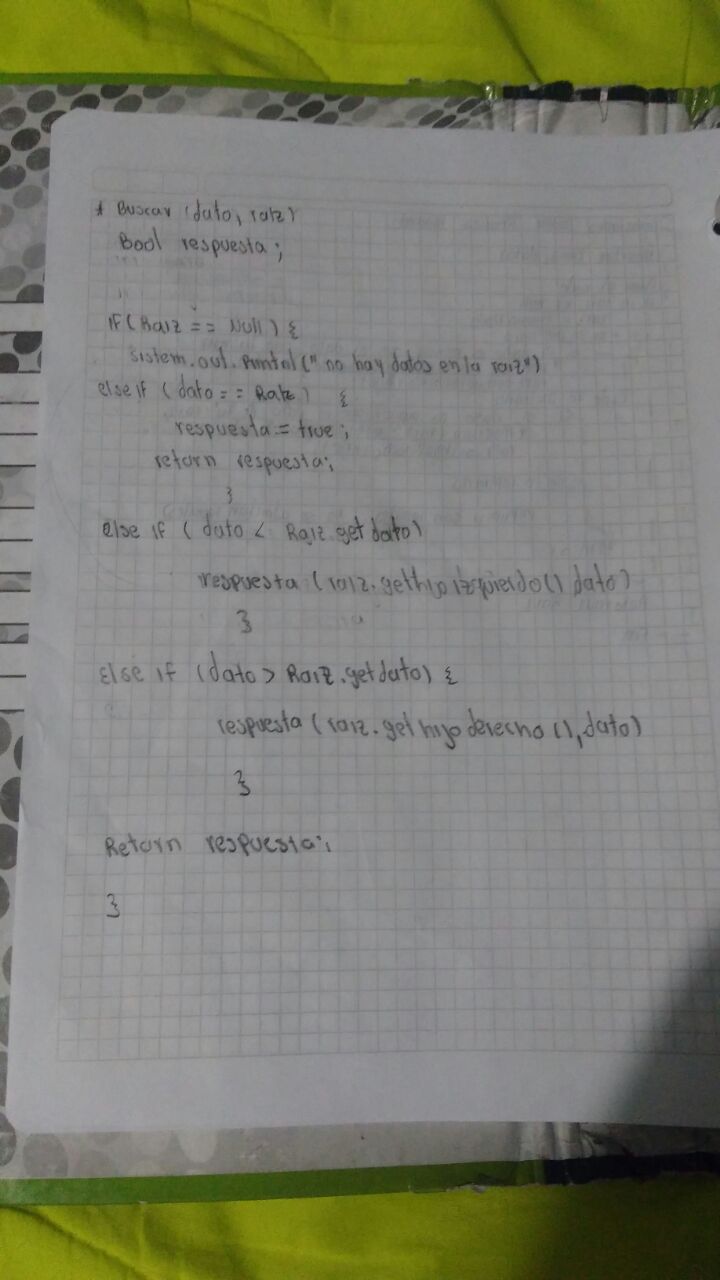 * Buscar (dato, raiz)
Bool respuesta;
if (Raiz == Null) {
sistem.out.Printnl (" no hay datos en la raiz")
else if (dato == Raiz) {
respuesta = true;
return respuesta;
}
else if ( dato < Raiz.get dato)
respuesta (raiz.gethijo izquierdo() dato)
}
Else if (dato > Raiz.getdato) {
respuesta (raiz.get hijo derecho (), dato)
}
Return respuesta;
}